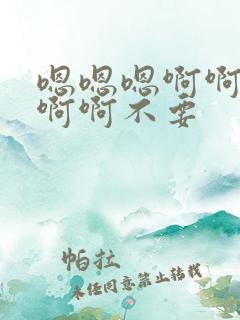 嗯嗯嗯啊啊
啊啊不要
帕拉
未经同意禁止转载